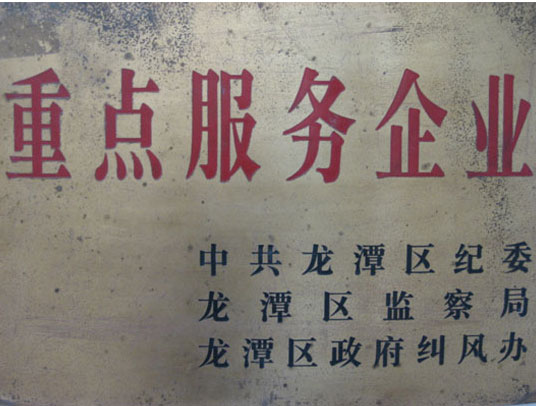 重点服务企业
中共龙潭区纪委
龙潭区监察局
龙潭区政府纠风办